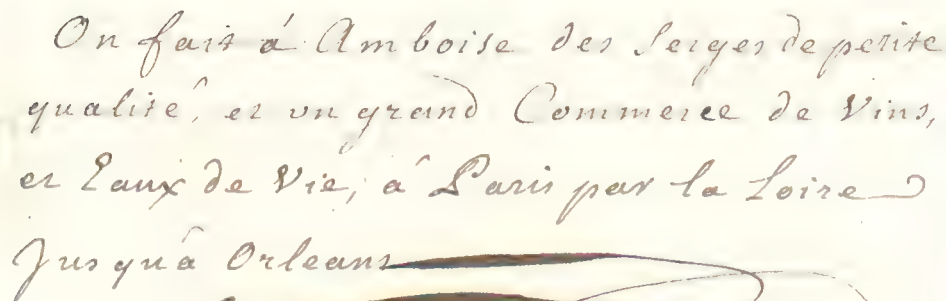 On fait á Amboise des Serges de petite
qualité, et un grand Commerce de Vins,
et Eaux de Vie, á Paris par la Loire
Jusqu'a Orleans